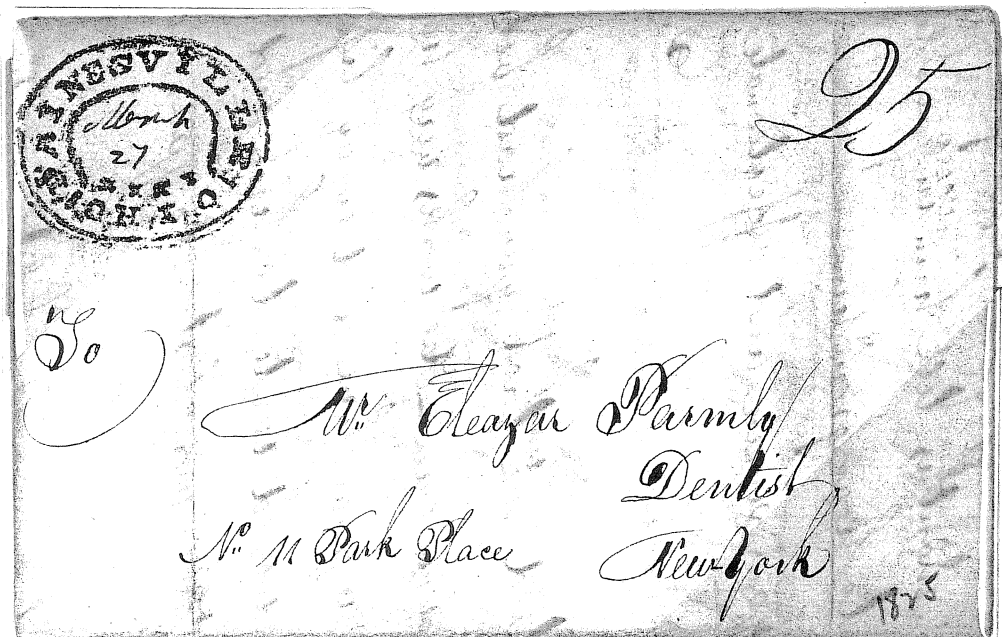 PAINESVILLE OHIO
March
27
25
To
Mr. Eleazar Parmly
Dentist,
No. 11 Park Place
New York
1825